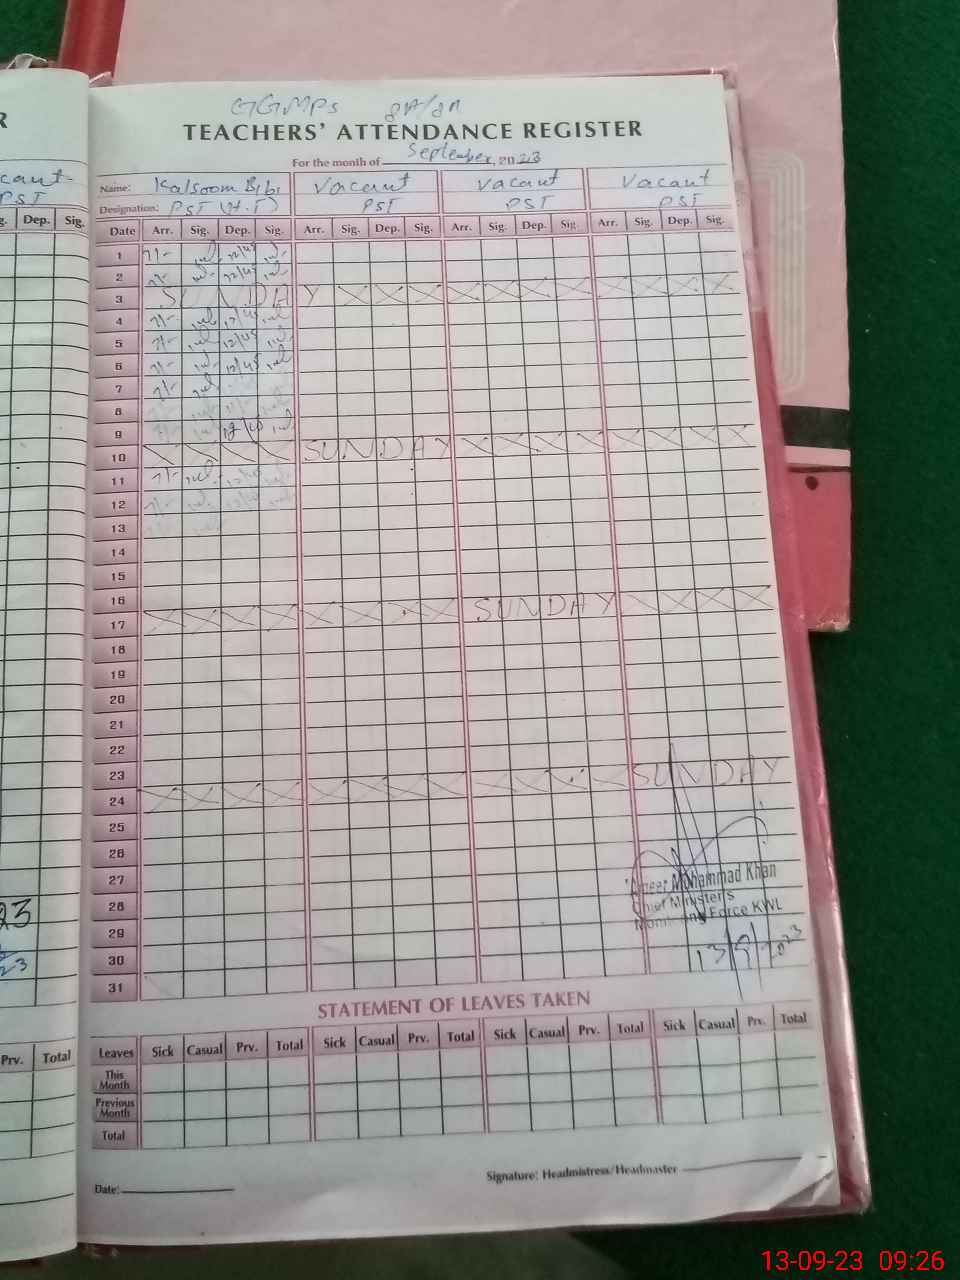 GGMPS 8A/8A
TEACHERS' ATTENDANCE REGISTER
For the month of September, 2023
Name: Kalsoom Bibi Vacant Vacant Vacant
Designation: PST (H.T) PST PST PST
Date Arr. Sig. Dep. Sig. Arr. Sig. Dep. Sig. Arr. Sig. Dep. Sig. Arr. Sig. Dep. Sig.
1 7/- 12/45
2 7/- 12/45
3 SUNDAY
4 7/- 12/45
5 7/- 12/45
6 7/- 12/45
7 7/-
8 7/-
9 7/-
10 SUNDAY
11 7/-
12 7/-
13 7/-
14
15
16
17 SUNDAY
18
19
20
21
22
23
24 SUNDAY
25
26
27
28
29
30
31
Ameer Mohammad Khan
Chief Minister's
Monitoring Force KWL
13/9/2023
STATEMENT OF LEAVES TAKEN
Leaves Sick Casual Prv. Total Sick Casual Prv. Total Sick Casual Prv. Total Sick Casual Prv. Total
This Month
Previous Month
Total
Date:
Signature: Headmistress/Headmaster
R
cant
PST
Dep. Sig.
23
23
Prv. Total
13-09-23 09:26